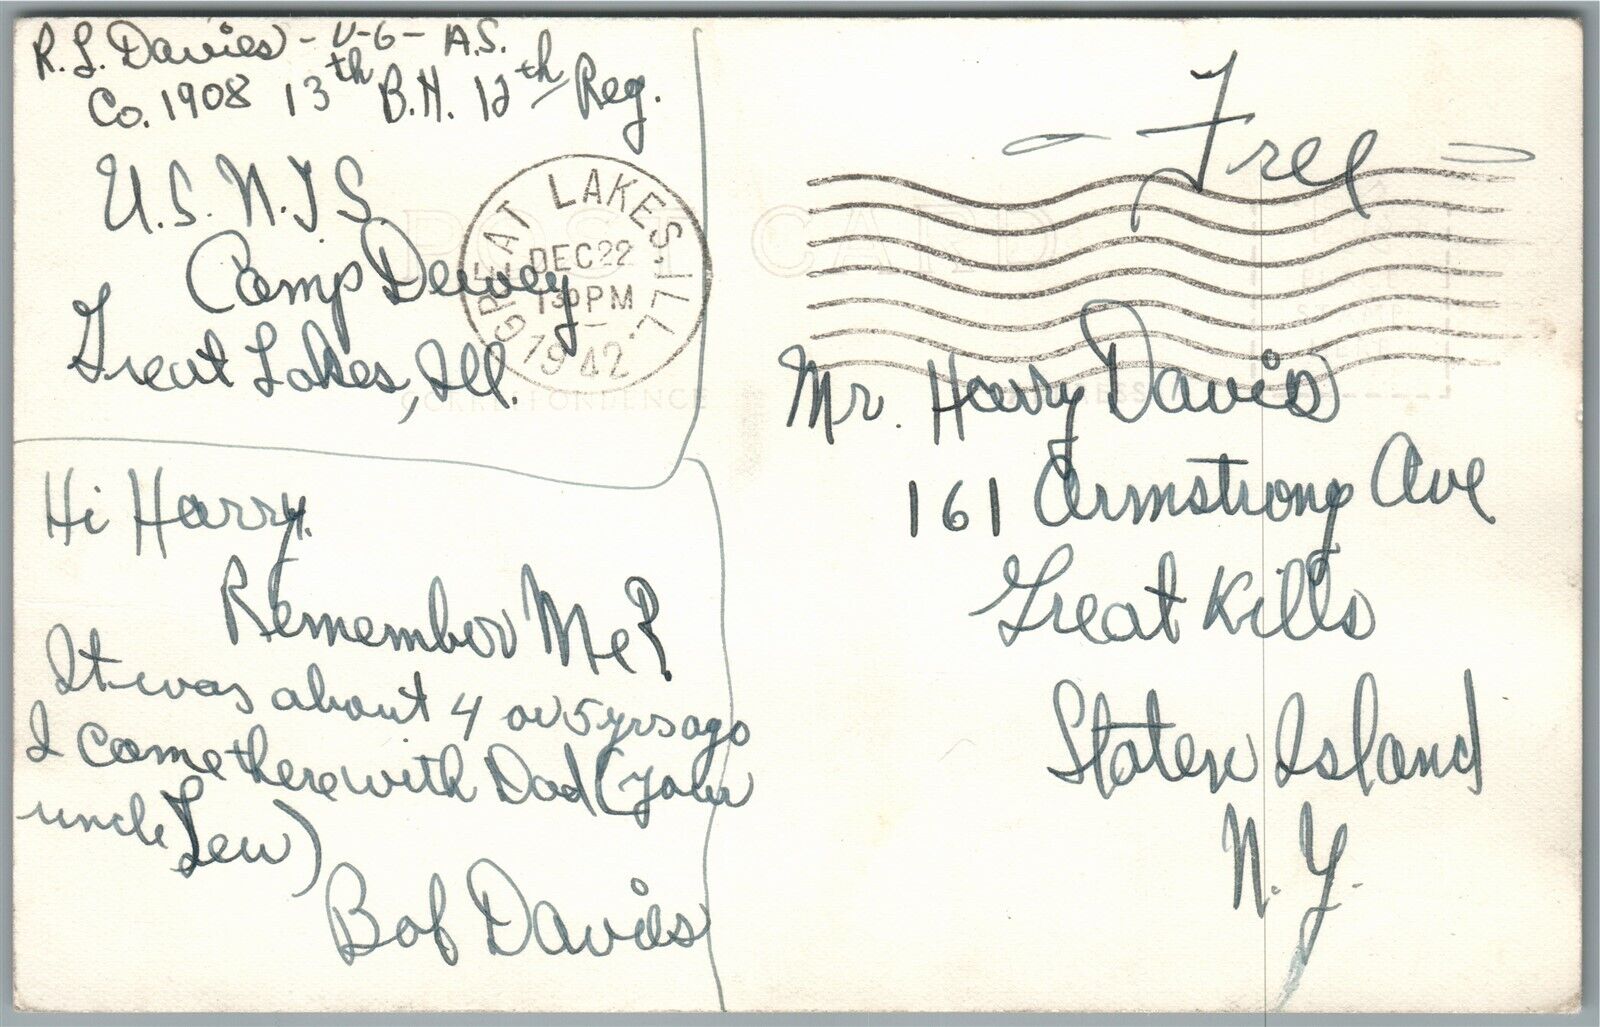 R. L. Davies - V-6 - A.S.
Co. 1908 13th B.N. 12th Reg.
U.S.N.T.S.
Camp Dewey
Great Lakes, Ill.
GREAT LAKES, ILL.
DEC 22
130 PM
1942
Free
POST CARD
CORRESPONDENCE
Hi Harry.
Remember Me?
It was about 4 or 5 yrs ago
I came there with Dad (your
uncle Lew)
Bob Davies
Mr. Harry Davis
161 Armstrong Ave
Great Kills
Staten Island
N.Y.